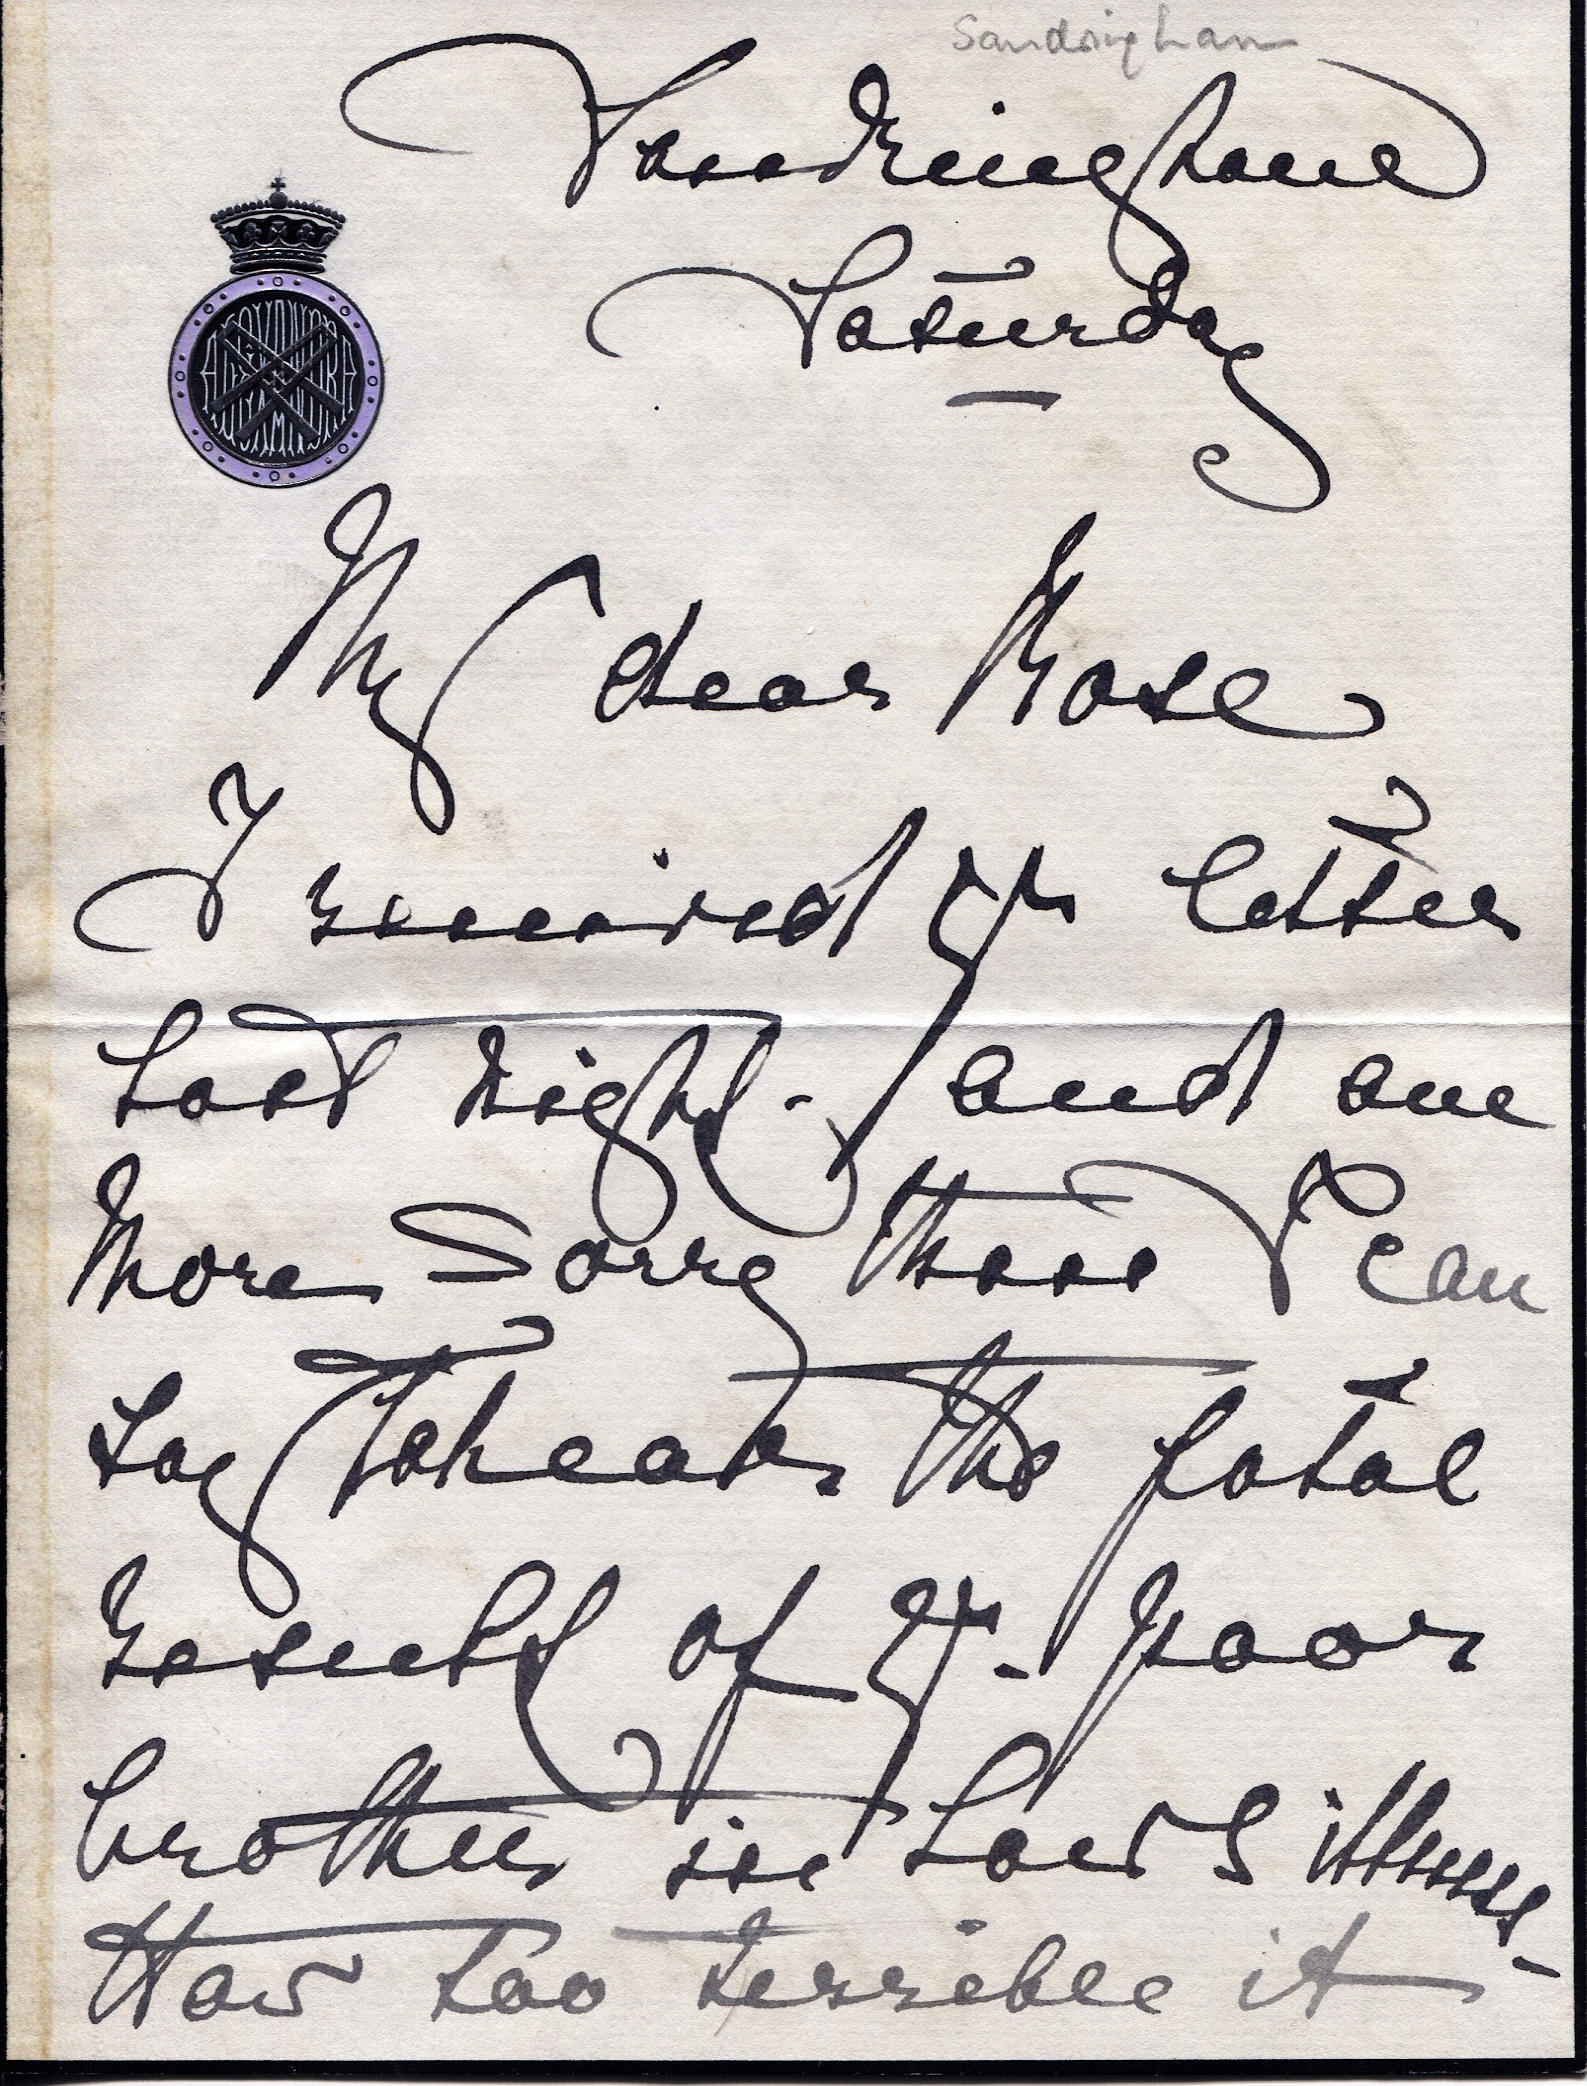 Sandringham
Sandringham
Saturday
My dear Rose
I received yr letter
last night - and am
more sorry than I can
say to hear the fatal
result of yr. poor
brother in law's illness -
How too terrible it